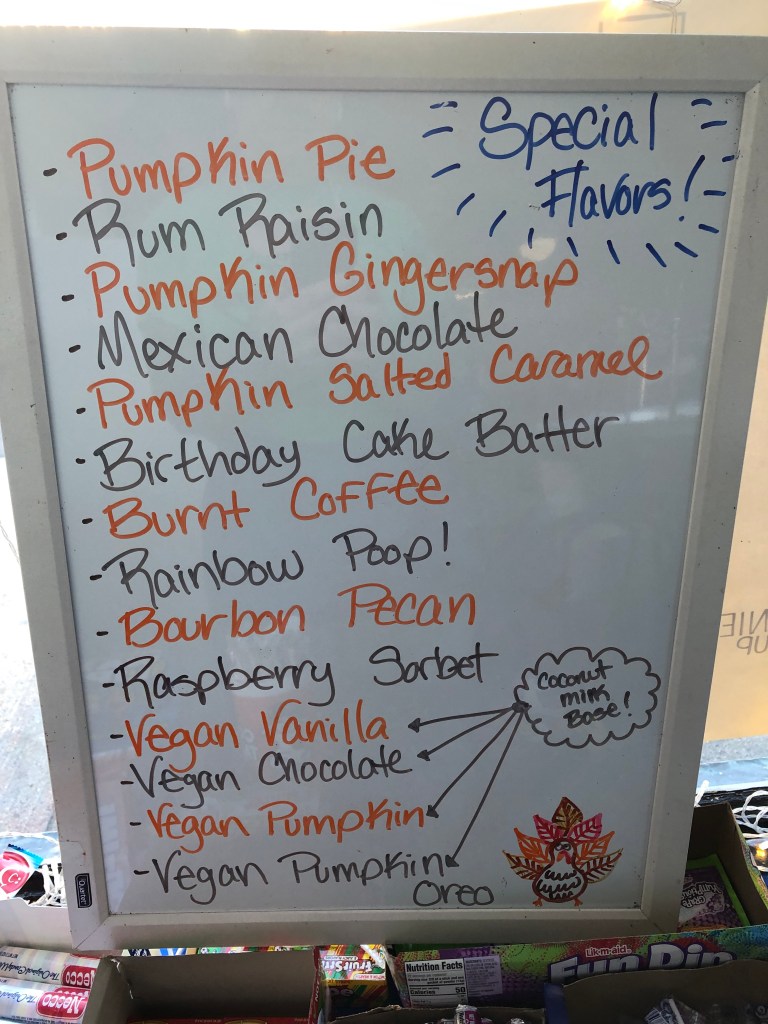 Special
Flavors!
- Pumpkin Pie
- Rum Raisin
- Pumpkin Gingersnap
- Mexican Chocolate
- Pumpkin Salted Caramel
- Birthday Cake Batter
- Burnt Coffee
- Rainbow Poop!
- Bourbon Pecan
- Raspberry Sorbet
- Vegan Vanilla
- Vegan Chocolate
- Vegan Pumpkin
- Vegan Pumpkin
Oreo
Coconut
milk
Base!
Quartet
NIE
UP
Necco
Necco
Nutrition Facts
Calories 50
Lik-m-aid
Fun Dip